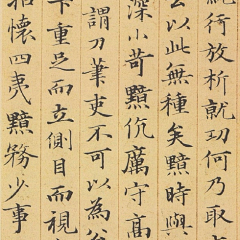 行放析就功何乃取
公以此無種矣黯時與
深小苛黯伉厲守高
謂刀筆吏不可以為公
下重足而立側目而視
招懷四夷黯務少事